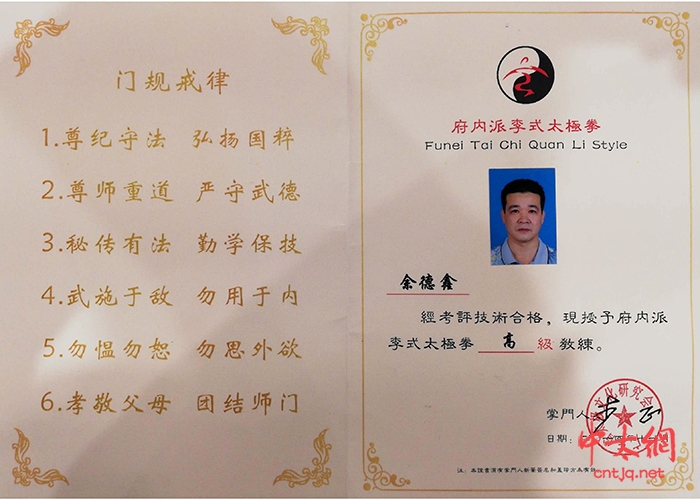 门规戒律
1.尊纪守法 弘扬国粹
2.尊师重道 严守武德
3.秘传有法 勤学保技
4.武施于敌 勿用于内
5.勿愠勿恕 勿思外欲
6.孝敬父母 团结师门
府内派李式太極拳
Funei Tai Chi Quan Li Style
余德鑫
經考評技術合格，現授予府内派
李式太極拳 高 級教練。
掌門人
文化研究会
日期:
中太網
cntjq.net